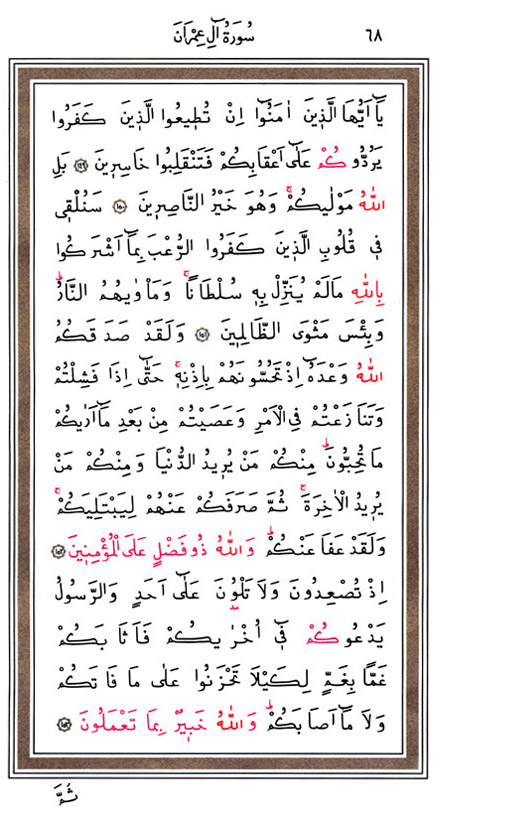 ٦٨ سُورَةُ اٰلِ عِمْرَانَ
يَٓا اَيُّهَا الَّذٖينَ اٰمَنُٓوا اِنْ تُطٖيعُوا الَّذٖينَ كَفَرُوا
يَرُدُّوكُمْ عَلٰٓى اَعْقَابِكُمْ فَتَنْقَلِبُوا خَاسِرٖينَ ﴿١٤٩﴾ بَلِ
اللّٰهُ مَوْلٰيكُمْۚ وَهُوَ خَيْرُ النَّاصِرٖينَ ﴿١٥٠﴾ سَنُلْقٖى
فٖى قُلُوبِ الَّذٖينَ كَفَرُوا الرُّعْبَ بِمَٓا اَشْرَكُوا
بِاللّٰهِ مَالَمْ يُنَزِّلْ بِهٖ سُلْطَانًاۚ وَمَاْوٰيهُمُ النَّارُۜ
وَبِئْسَ مَثْوَى الظَّالِمٖينَ ﴿١٥١﴾ وَلَقَدْ صَدَقَكُمُ
اللّٰهُ وَعْدَهُٓ اِذْ تَحُسُّونَهُمْ بِاِذْنِهٖۚ حَتّٰٓى اِذَا فَشِلْتُمْ
وَتَنَازَعْتُمْ فِى الْاَمْرِ وَعَصَيْتُمْ مِنْ بَعْدِ مَٓا اَرٰيكُمْ
مَا تُحِبُّونَۜ مِنْكُمْ مَنْ يُرٖيدُ الدُّنْيَا وَمِنْكُمْ مَنْ
يُرٖيدُ الْاٰخِرَةَۚ ثُمَّ صَرَفَكُمْ عَنْهُمْ لِيَبْتَلِيَكُمْۚ
وَلَقَدْ عَفَا عَنْكُمْۜ وَاللّٰهُ ذُوفَضْلٍ عَلَى الْمُؤْمِنٖينَ ﴿١٥٢﴾
اِذْ تُصْعِدُونَ وَلَا تَلْوُنَ عَلٰٓى اَحَدٍ وَالرَّسُولُ
يَدْعُوكُمْ فٖٓى اُخْرٰيكُمْ فَاَثَابَكُمْ
غَمًّا بِغَمٍّ لِكَيْلَا تَحْزَنُوا عَلٰى مَا فَاتَكُمْ
وَلَا مَٓا اَصَابَكُمْۜ وَاللّٰهُ خَبٖيرٌ بِمَا تَعْمَلُونَ ﴿١٥٣﴾
ثُمَّ